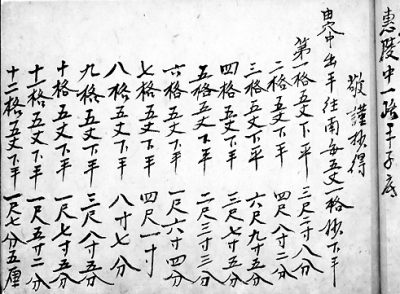 惠陵中一路平子底
敬謹抄得
由穴中出平往南每五丈一格抄下平
第一格五丈下平 三尺三寸八分
二格五丈下平 四尺八寸二分
三格五丈下平 六尺九寸五分
四格五丈下平 二尺三寸三分
五格五丈下平 二尺三寸三分
六格五丈下平 一尺六寸四分
七格五丈下平 四尺一寸
八格五丈下平 八寸七分
九格五丈下平 三尺八寸五分
十格五丈下平 一尺七寸五分
十一格五丈下平 一尺五寸二分
十二格五丈下平 一尺七分五厘